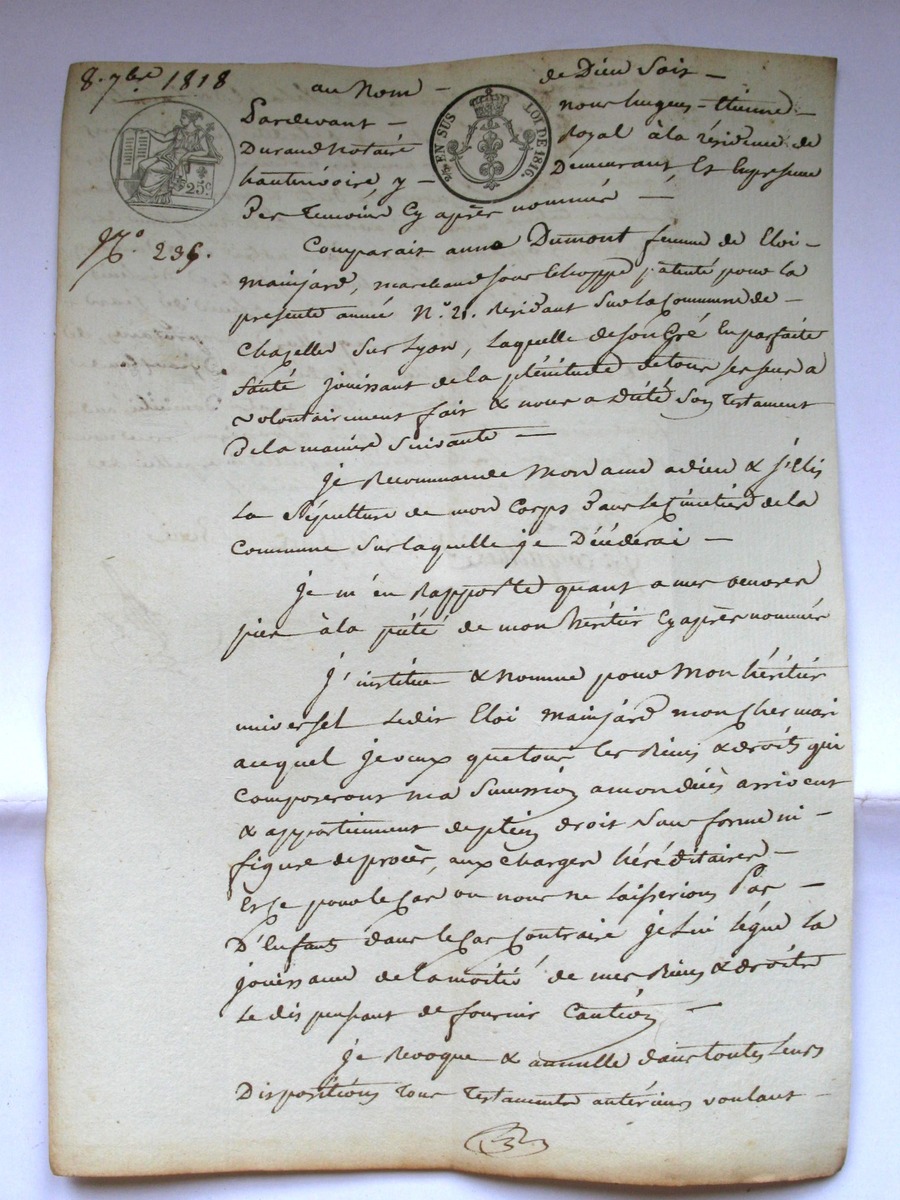 8. 7bre 1818
au Nom — de Dieu Soit —
Pardevant — nous hugues-Etienne —
Durand Notaire Royal à la résidence de
hauterivoire, y — Demeurant, Et En presence
Des Temoins Cy après nommés —
25c
5c EN SUS LOI DE 1816.
N.o 236.
Comparait anne Dumont femme de Eloi —
mainjard, marchand sous Echoppe patenté pour la
presente année N.o 21. Résidant Sur la Commune de —
Chazelles Sur Lyon, laquelle de son Gré En parfaite
Santé jouissant de la plénitude de tous ses sens a
volontairement fait & nous a Dicté Son Testament
De la maniere Suivante —
Je Recommande Mon ame a dieu & j'Elis
La Sépulture de mon Corps Dans le Cimetière de la
Commune Sur laquelle je Décéderai —
Je m'en Rapporte quant a mes oeuvres
pies à la piété de mon héritier Cy après nommé
J'institue & Nomme pour Mon héritier
universel Ledit Eloi mainjard mon Cher mari
auquel Je veux que tous les Biens & droits qui
Composeront ma Succession a mon décès arrivent
& appartiennent de plein droit Sans forme ni —
figure de procès, aux charges héréditaires —
Et Ce pour le Cas ou nous ne laisserions Pas —
D'Enfants dans le Cas Contraire je Lui légue la
jouissance de la moitié de mes Biens & droits
Le dispensant de fournir Caution —
Je Revoque & annulle dans toutes leurs
Dispositions Tous Testaments antérieurs voulant —